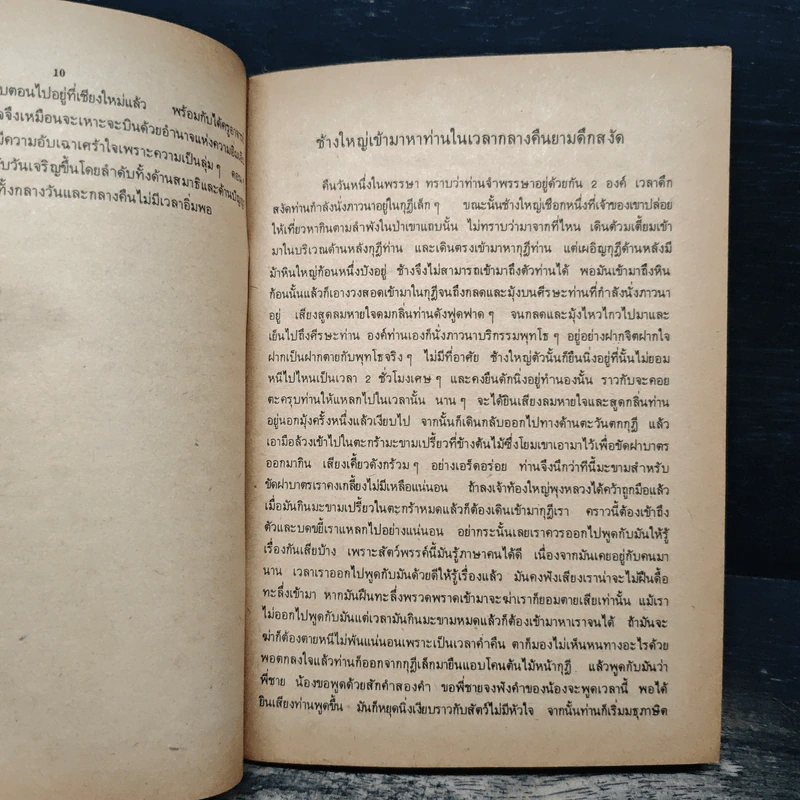 10
บตอนไปอยู่ที่เชียงใหม่แล้ว พร้อมกับได้ครูอาจารย์
จจึงเหมือนจะเหาะจะบินด้วยอำนาจแห่งความอิ่มเอิบ
มีความอับเฉาเศร้าใจเพราะความเป็นลุ่ม ๆ ดอน ๆ
บวันเจริญขึ้นโดยลำดับทั้งด้านสมาธิและด้านปัญญา
ทั้งกลางวันและกลางคืนไม่มีเวลาอิ่มพอ
ช้างใหญ่เข้ามาหาท่านในเวลากลางคืนยามดึกสงัด
คืนวันหนึ่งในพรรษา ทราบว่าท่านจำพรรษาอยู่ด้วยกัน 2 องค์ เวลาดึก
สงัดท่านกำลังนั่งภาวนาอยู่ในกุฎีเล็ก ๆ ขณะนั้นช้างใหญ่เชือกหนึ่งที่เจ้าของเขาปล่อย
ให้เที่ยวหากินตามลำพังในป่าเขาแถบนั้น ไม่ทราบว่ามาจากที่ไหน เดินด้วมเตี้ยมเข้า
มาในบริเวณด้านหลังกุฎีท่าน และเดินตรงเข้ามาหากุฎีท่าน แต่เผอิญกุฎีด้านหลังมี
ม้าหินใหญ่ก้อนหนึ่งบังอยู่ ช้างจึงไม่สามารถเข้ามาถึงตัวท่านได้ พอมันเข้ามาถึงหิน
ก้อนนั้นแล้วก็เอางวงสอดเข้ามาในกุฎีจนถึงกลดและมุ้งบนศีรษะท่านที่กำลังนั่งภาวนา
อยู่ เสียงสูดลมหายใจดมกลิ่นท่านดังฟูดฟาด ๆ จนกลดและมุ้งไหวไกวไปมาและ
เย็นไปถึงศีรษะท่าน องค์ท่านเองก็นั่งภาวนาบริกรรมพุทโธ ๆ อยู่อย่างฝากจิตฝากใจ
ฝากเป็นฝากตายกับพุทโธจริง ๆ ไม่มีที่อาศัย ช้างใหญ่ตัวนั้นก็ยืนนิ่งอยู่ที่นั้นไม่ยอม
หนีไปไหนเป็นเวลา 2 ชั่วโมงเศษ ๆ และคงยืนดักนิ่งอยู่ทำนองนั้น ราวกับจะคอย
ตะครุบท่านให้แหลกไปในเวลานั้น นาน ๆ จะได้ยินเสียงลมหายใจและสูดกลิ่นท่าน
อยู่นอกมุ้งครั้งหนึ่งแล้วเงียบไป จากนั้นก็เดินกลับออกไปทางด้านตะวันตกกุฎี แล้ว
เอามือล้วงเข้าไปในตะกร้ามะขามเปรี้ยวที่ข้างต้นไม้ซึ่งโยมเขาเอามาไว้เพื่อขัดฝาบาตร
ออกมากิน เสียงเคี้ยวดังกร้วม ๆ อย่างเอร็ดอร่อย ท่านจึงนึกว่าทีนี้มะขามสำหรับ
ขัดฝาบาตรเราคงเกลี้ยงไม่มีเหลือแน่นอน ถ้าลงเจ้าท้องใหญ่พุงหลวงได้คว้าถูกมือแล้ว
เมื่อมันกินมะขามเปรี้ยวในตะกร้าหมดแล้วก็ต้องเดินเข้ามากุฎีเรา คราวนี้ต้องเข้าถึง
ตัวและบดขยี้เราแหลกไปอย่างแน่นอน อย่ากระนั้นเลยเราควรออกไปพูดกับมันให้รู้
เรื่องกันเสียบ้าง เพราะสัตว์พรรค์นี้มันรู้ภาษาคนได้ดี เนื่องจากมันเคยอยู่กับคนมา
นาน เวลาเราออกไปพูดกับมันด้วยดีให้รู้เรื่องแล้ว มันคงฟังเสียงเราน่าจะไม่ฝืนดื้อ
ทะลึ่งเข้ามา หากมันฝืนทะลึ่งพรวดพราดเข้ามาจะฆ่าเราก็ยอมตายเสียเท่านั้น แม้เรา
ไม่ออกไปพูดกับมันแต่เวลามันกินมะขามหมดแล้วก็ต้องเข้ามาหาเราจนได้ ถ้ามันจะ
ฆ่าก็ต้องตายหนีไม่พ้นแน่นอนเพราะเป็นเวลาค่ำคืน ตาก็มองไม่เห็นหนทางอะไรด้วย
พอตกลงใจแล้วท่านก็ออกจากกุฎีเล็กมายืนแอบโคนต้นไม้หน้ากุฎี แล้วพูดกับมันว่า
พี่ชาย น้องขอพูดด้วยสักคำสองคำ ขอพี่ชายจงฟังคำของน้องจะพูดเวลานี้ พอได้
ยินเสียงท่านพูดขึ้น มันก็หยุดนิ่งเงียบราวกับสัตว์ไม่มีหัวใจ จากนั้นท่านก็เริ่มมธุภาษิต